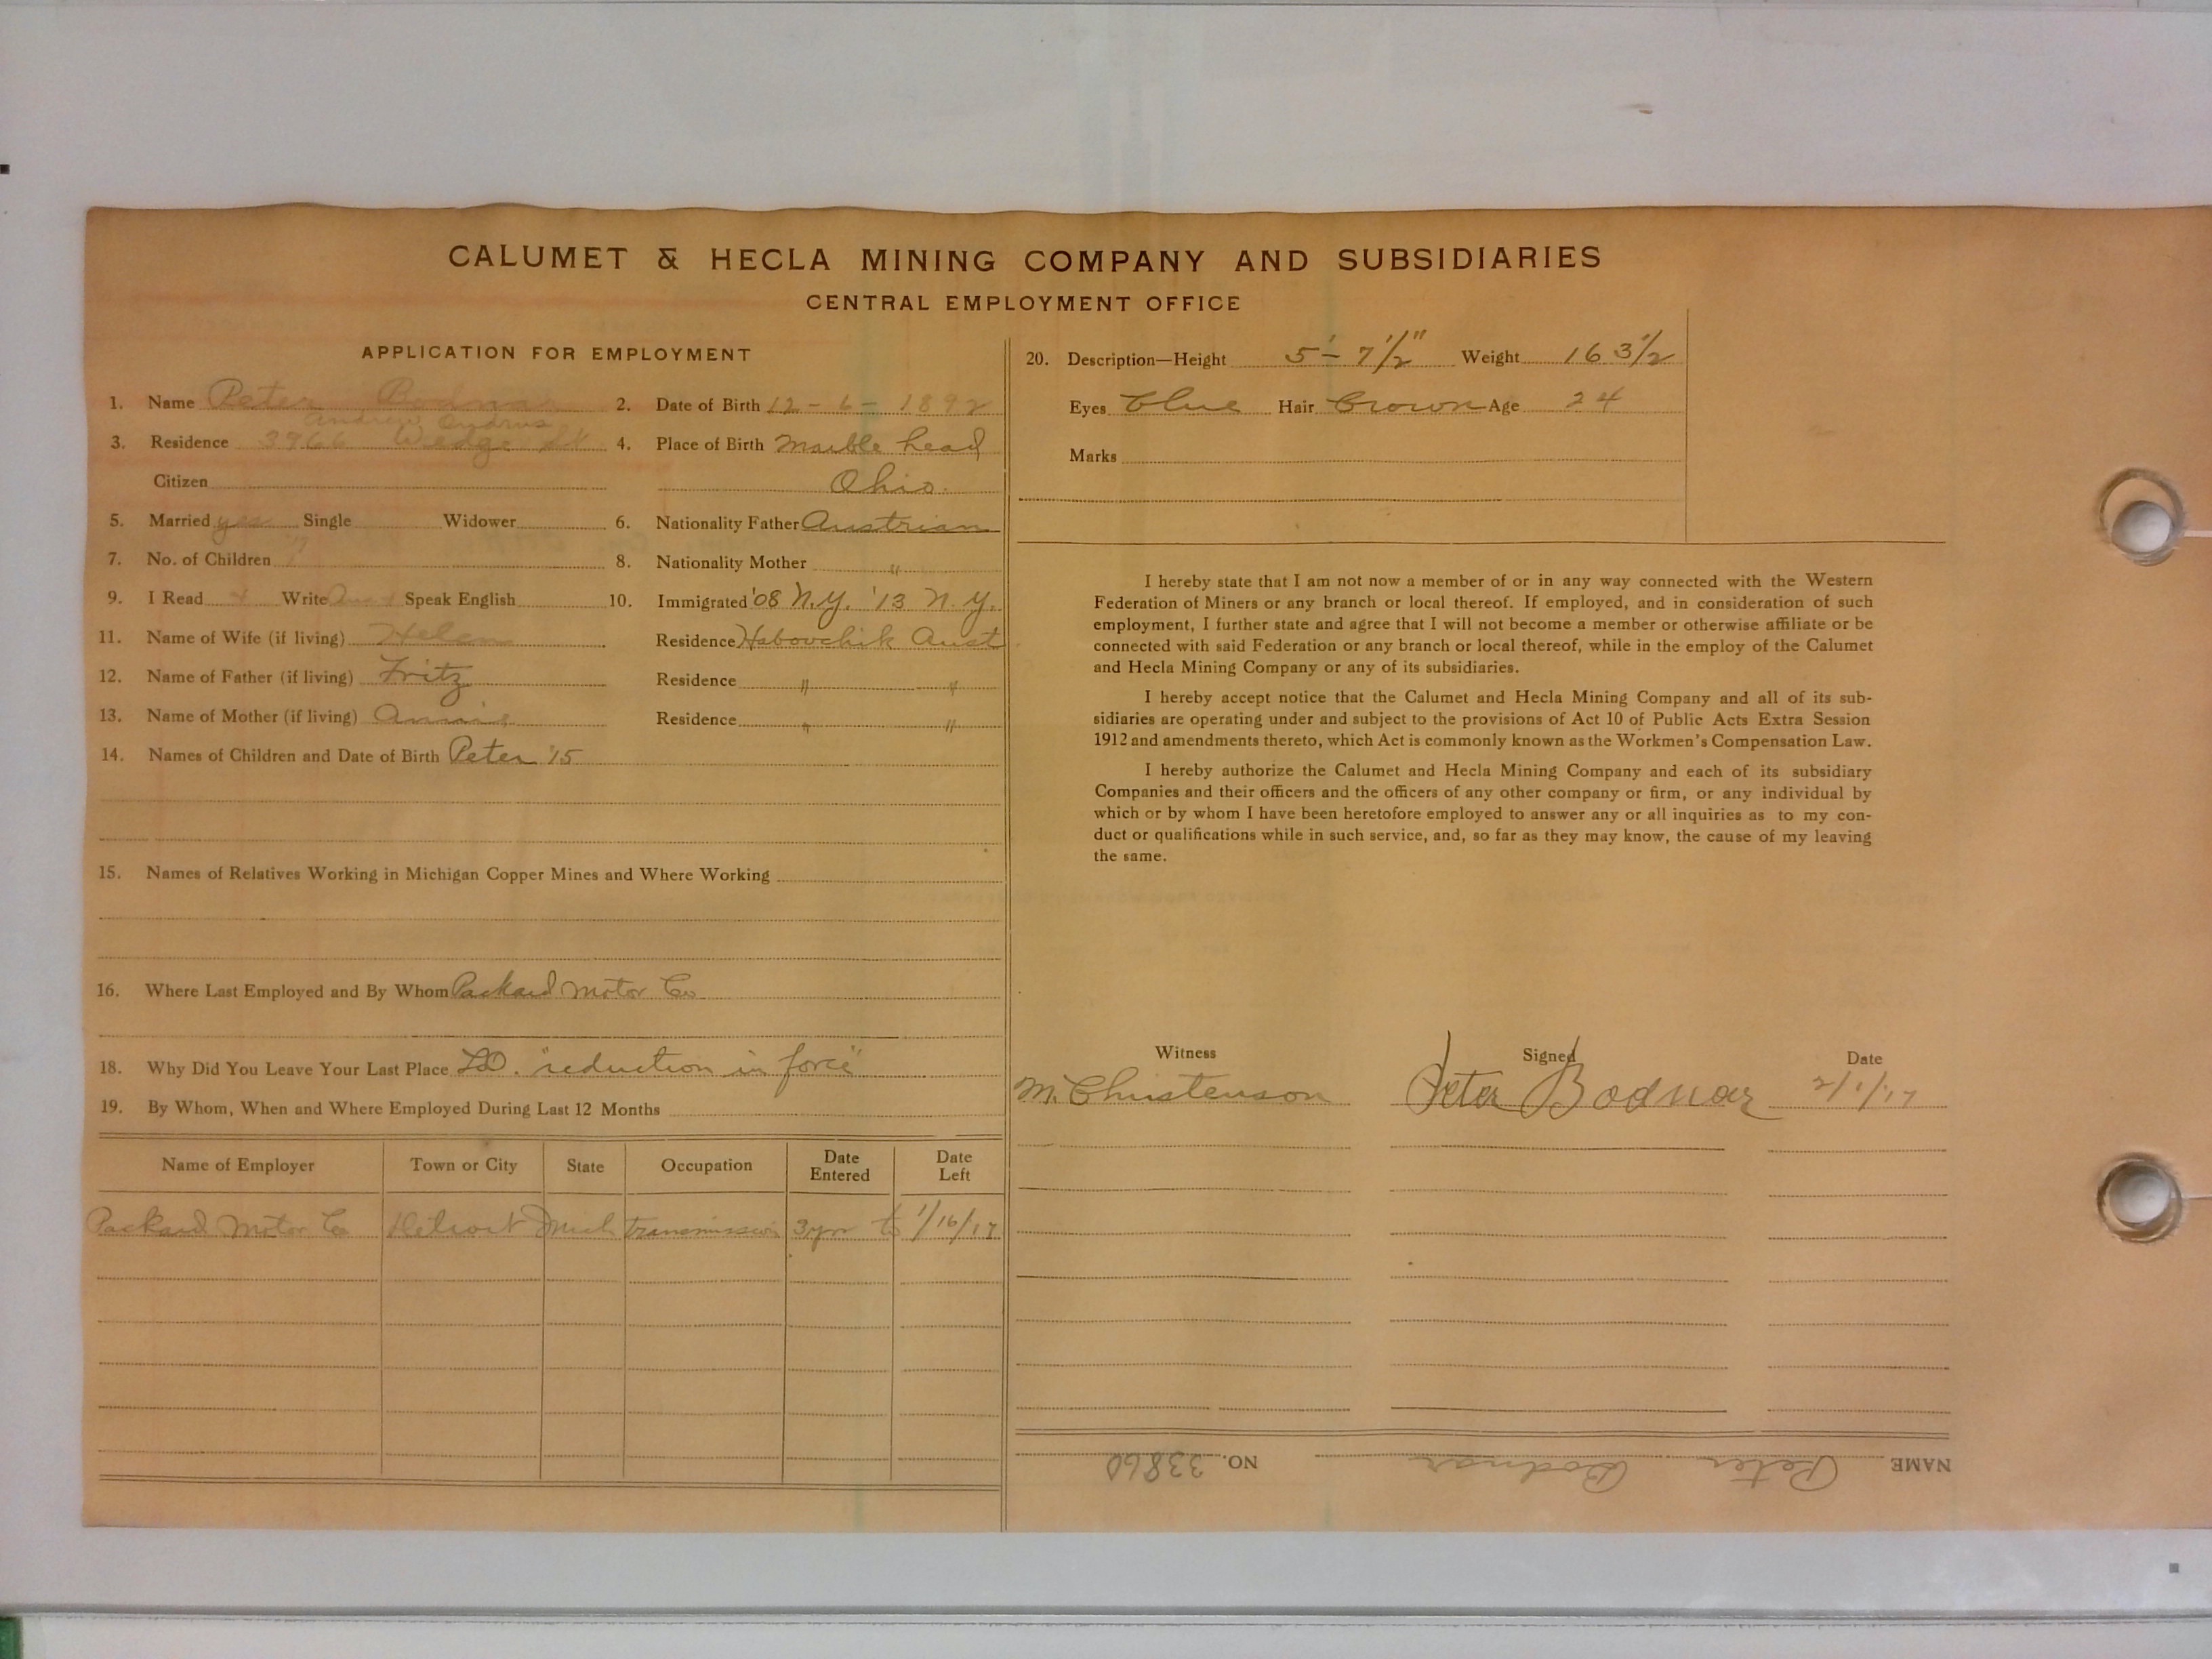 CALUMET & HECLA MINING COMPANY AND SUBSIDIARIES
CENTRAL EMPLOYMENT OFFICE
APPLICATION FOR EMPLOYMENT
1. Name Peter Bodnar 2. Date of Birth 12-6-1892
Andrew
3. Residence 3966 St 4. Place of Birth Marble head
Citizen Ohio.
5. Married yes Single Widower 6. Nationality Father Austrian
7. No. of Children 8. Nationality Mother "
9. I Read Write Speak English 10. Immigrated '08 N.Y. '13 N.Y.
11. Name of Wife (if living) Helen Residence Aust
12. Name of Father (if living) Fritz Residence " "
13. Name of Mother (if living) Annie Residence " "
14. Names of Children and Date of Birth Peter '15
15. Names of Relatives Working in Michigan Copper Mines and Where Working
16. Where Last Employed and By Whom Packard Motor Co
18. Why Did You Leave Your Last Place LO. "reduction in force"
19. By Whom, When and Where Employed During Last 12 Months
Name of Employer Town or City State Occupation Date Entered Date Left
Packard Motor Co Detroit Mich transmission 3yrs to 1/16/17
20. Description—Height 5'-7 1/2" Weight 163 1/2
Eyes Blue Hair Brown Age 24
Marks
I hereby state that I am not now a member of or in any way connected with the Western
Federation of Miners or any branch or local thereof. If employed, and in consideration of such
employment, I further state and agree that I will not become a member or otherwise affiliate or be
connected with said Federation or any branch or local thereof, while in the employ of the Calumet
and Hecla Mining Company or any of its subsidiaries.
I hereby accept notice that the Calumet and Hecla Mining Company and all of its sub-
sidiaries are operating under and subject to the provisions of Act 10 of Public Acts Extra Session
1912 and amendments thereto, which Act is commonly known as the Workmen's Compensation Law.
I hereby authorize the Calumet and Hecla Mining Company and each of its subsidiary
Companies and their officers and the officers of any other company or firm, or any individual by
which or by whom I have been heretofore employed to answer any or all inquiries as to my con-
duct or qualifications while in such service, and, so far as they may know, the cause of my leaving
the same.
Witness Signed Date
M. Christenson Peter Bodnar 2/1/17
NAME Peter Bodnar NO. 33860